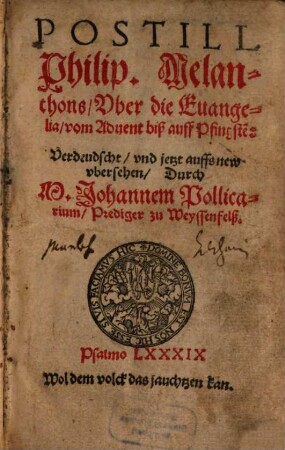 POSTILL
Philip. Melan⸗
chons/Vber die Euange⸗
lia/vom Aduent biß auff Pfingstē⸗
Verdeudscht/vnd jetzt auffs new
vbersehen/Durch
M. Johannem Pollica⸗
rium/Prediger zu Weyssenfelß.
Psalmo LXXXIX
Wol dem volck das jauchtzen kan.